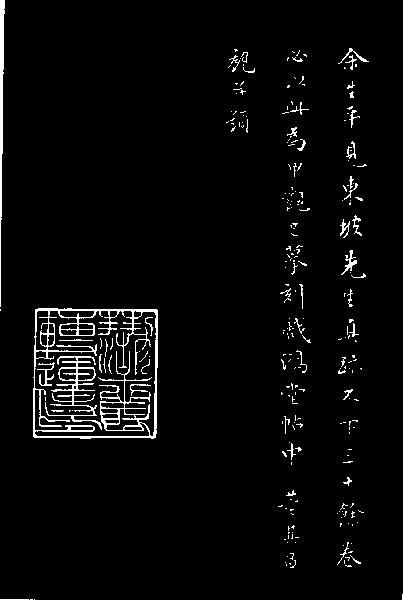 余生平見東坡先生真跡不下三十餘卷
必以此為甲觀已摹刻戲鴻堂帖中 董其昌
觀并題